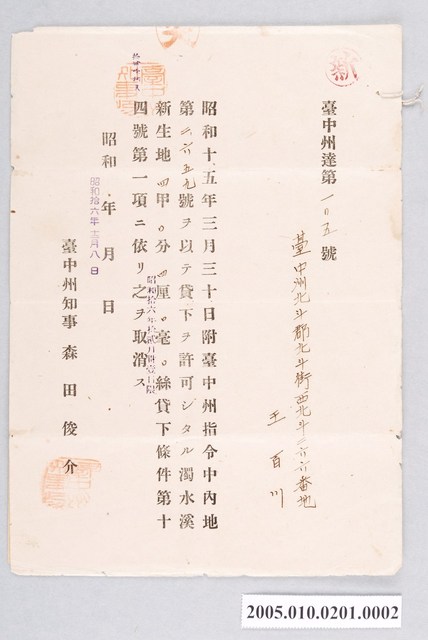 新
臺中州達第一〇五號
臺中州北斗郡北斗街西北斗二六六番地
王百川
昭和十五年三月三十日附臺中州指令中內地
第二六五九號ヲ以テ貸下ヲ許可シタル濁水溪
新生地四甲〇分四厘〇毫〇絲貸下條件第十
四號第一項ニ依リ之ヲ取消ス
昭和拾六年拾貳月參壹日限
昭和 年 月 日
昭和拾六年三月八日
臺中州知事 森田俊介
2005.010.0201.0002